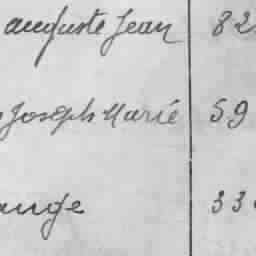 auguste Jean 82
Joseph Marie 59
ange 33